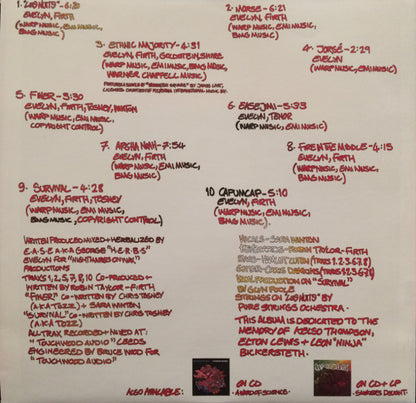 1. "LES NUITS" - 6:20
EVELYN, FIRTH
(WARP MUSIC, EMI MUSIC,
BMG MUSIC)
2. NURSE - 6:21
EVELYN, FIRTH
(WARP MUSIC, EMI MUSIC,
BMG MUSIC)
3. ETHNIC MAJORITY - 4:31
EVELYN, FIRTH, GOLDSTEIN, SHIRE
(WARP MUSIC, EMI MUSIC, BMG MUSIC,
WARNER CHAPPELL MUSIC)
4. JORGÉ - 2:29
EVELYN
(WARP MUSIC, EMI MUSIC)
5. FINER - 5:30
EVELYN, FIRTH, TOSNEY, WINTON
(WARP MUSIC, EMI MUSIC,
COPYRIGHT CONTROL)
6. EASEJMI - 5:33
EVELYN, TENOR
(WARP MUSIC, EMI MUSIC)
7. ARGHA NOAH - 7:54
EVELYN, FIRTH
(WARP MUSIC, EMI MUSIC,
BMG MUSIC)
8. FIRE IN THE MIDDLE - 4:15
EVELYN, FIRTH
(WARP MUSIC, EMI MUSIC,
BMG MUSIC)
9. SURVIVAL - 4:28
EVELYN, FIRTH, TOSNEY
(WARP MUSIC, EMI MUSIC,
BMG MUSIC, COPYRIGHT CONTROL)
10 CAPUMCAP - 5:10
EVELYN, FIRTH
(WARP MUSIC, EMI MUSIC,
BMG MUSIC).
WRITTEN PRODUCED MIXED + HERBALIZED BY
E.A.S.E A.K.A GEORGE "H-E-R-B-S"
EVELYN FOR "NIGHTMARES ON WAX"
PRODUCTIONS
TRAX 1, 2, 5, 7, 8, 10 CO-PRODUCED +
WRITTEN BY ROBIN TAYLOR-FIRTH
"FINER" CO-WRITTEN BY CHRIS TOSNEY
(A.K.A TOZZ) + SARA WINTON
"SURVIVAL" CO-WRITTEN BY CHRIS TOSNEY
(A.K.A TOZZ)
ALL TRAX RECORDED + MIXED AT:
"TOUCHWOOD AUDIO" LEEDS
ENGINEERED BY BRUCE WOOD FOR
"TOUCHWOOD AUDIO"
VOCALS - SARA WINTON
KEYBOARDS - ROBIN TAYLOR-FIRTH
VOCAL PRODUCTION ON "SURVIVAL"
BY GLYN POOLE
STRINGS ON "LES NUITS" BY
PURE STRINGS ORCHESTRA.
THIS ALBUM IS DEDICATED TO THE
MEMORY OF KELSO THOMPSON,
ELTON LEWIS + LEON "NINJA"
BICKERSTETH.
ALSO AVAILABLE:
ON CD
A WORD OF SCIENCE.
ON CD + LP
SMOKERS DELIGHT.